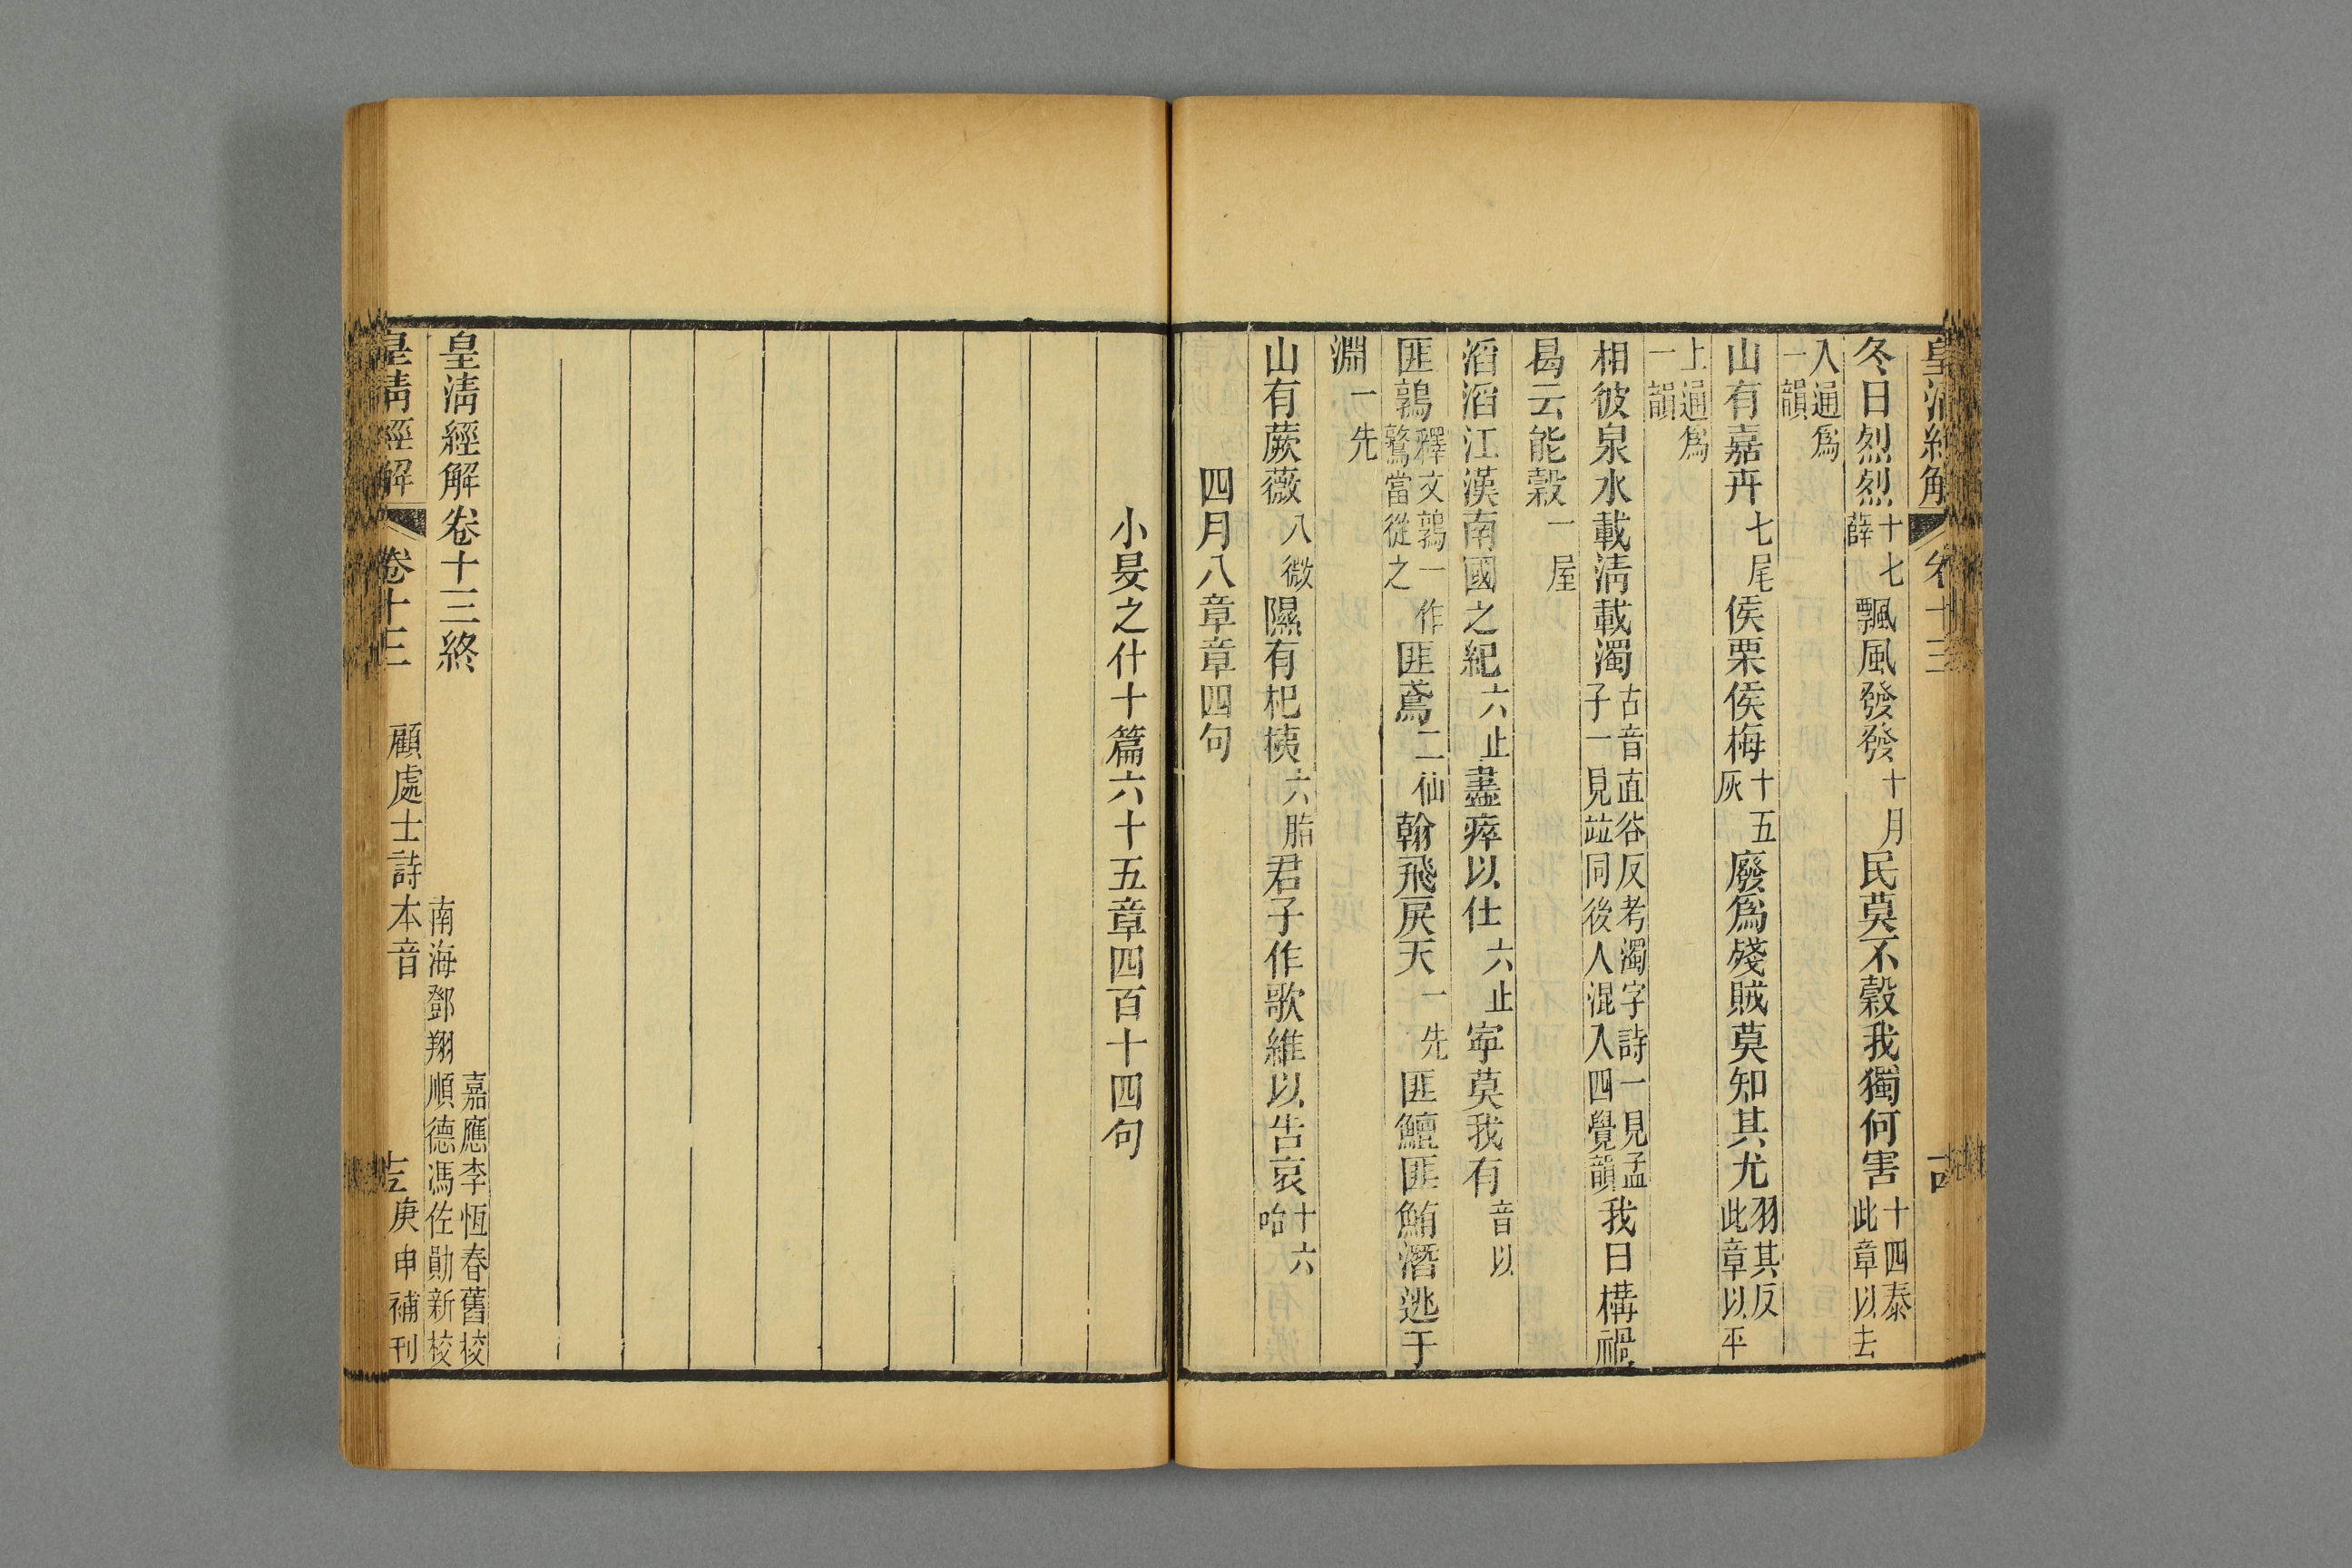 皇清經解 卷十三 古
冬日烈烈十七薛飄風發發十月民莫不穀我獨何害十四泰此章以去
入通爲一韻
山有嘉卉七尾侯栗侯梅十五灰廢爲殘賊莫知其尤羽其反此章以平
上通爲一韻
相彼泉水載淸載濁古音直谷反考濁字詩一見孟子一見竝同後人混入四覺韻我日構禍
曷云能穀一屋
滔滔江漢南國之紀六止盡瘁以仕六止寧莫我有音以
匪鶉釋文鶉一作鷻當從之匪鳶二仙翰飛戾天一先匪鱣匪鮪潛逃于
淵一先
山有蕨薇八微隰有杞桋六脂君子作歌維以告哀十六咍
四月八章章四句
小旻之什十篇六十五章四百十四句
皇淸經解卷十三終
嘉應李恆春舊校
南海鄧翔順德馮佐勛新校
皇清經解 卷十三 顧處士詩本音 庚申補刊